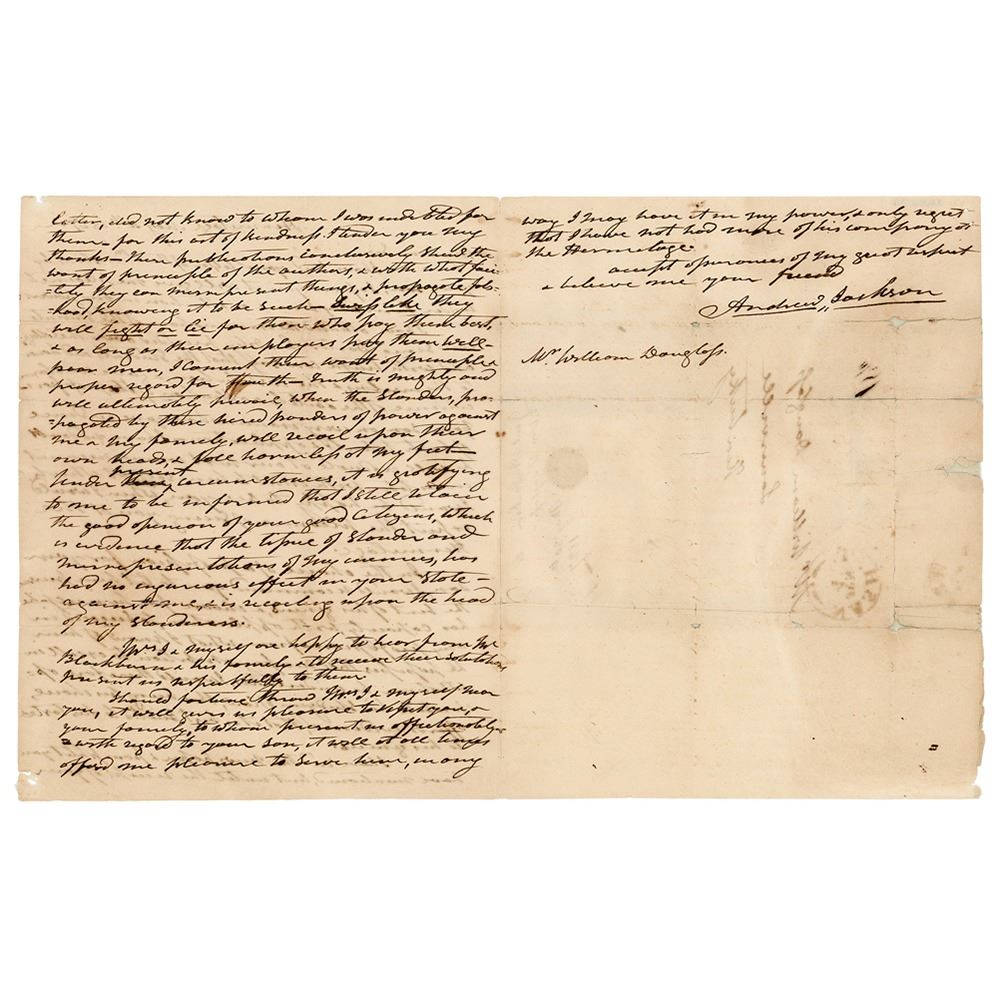 letter, did not know to whom I was indebted for
them - for this act of kindness. I tender you my
thanks - these publications conclusively shew the
want of principle of the authors, & with what faci-
-lity they can misrepresent things, & propagate fals-
-hood, knowing it to be such - Swiss like they
will fight or lie for those who pay them best,
& as long as their employers pay them well -
poor men, I lament their want of principle &
proper regard for truth - Truth is mighty and
will ultimately prevail, when the Slanders, pro-
-pagated by these hired panders of power against
me & my family, will recoil upon their
own heads, & fall harmless at my feet -
present
Under these circumstances, it is gratifying
to me to be informed that I still retain
the good opinion of your good Citizens, which
is evidence that the tissue of Slander and
misrepresentations of my enemies, has
had no injureous effect in your State -
against me, & is recoiling upon the head
of my Slanderers.
Mrs J & myself are happy to hear from Mr
Blackburn & his family & to receive their salutations
present us respectfully to them
Should fortune throw Mrs J & myself near
you, it will give us pleasure to visit you, &
your family, to whom present us affectionately
& with regard to your son, it will at all times
afford me pleasure to serve him, in any
way I may have it in my power, & only regret
that I have not had more of his company at
the Hermitage.
accept assurances of my great respect
& believe me your friend
Andrew Jackson
Mr William Douglass.